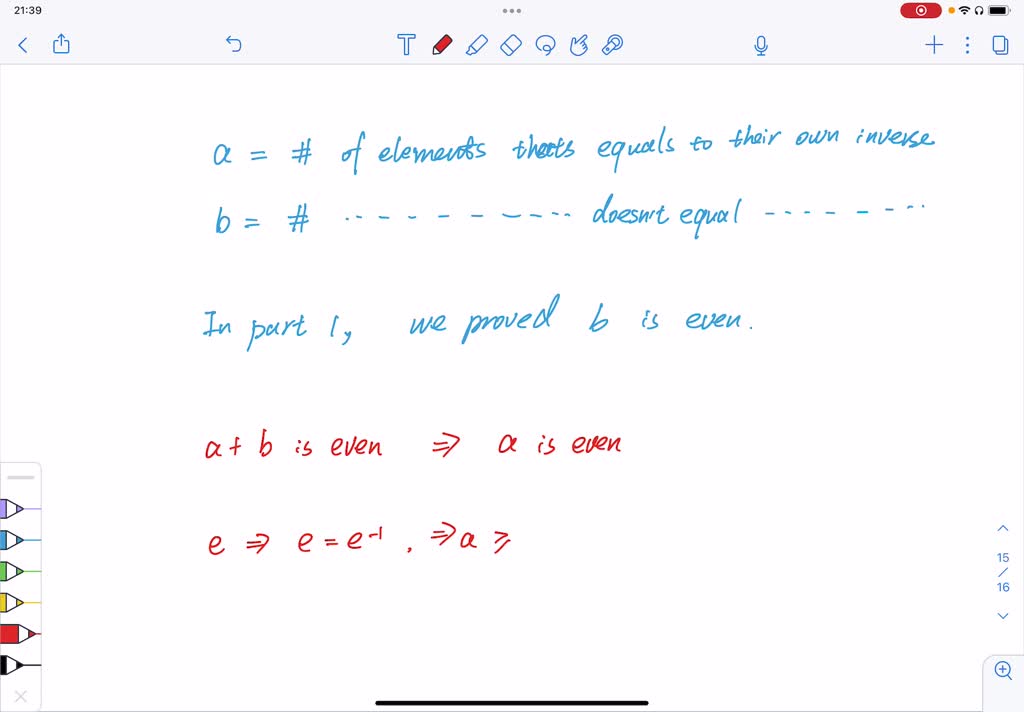 21:39
a = # of elements thats equals to their own inverse
b = # ---------- doesn't equal --------
In part 1, we proved b is even.
a + b is even ⇒ a is even
e ⇒ e = e⁻¹ . ⇒ a ⩾
15
/
16